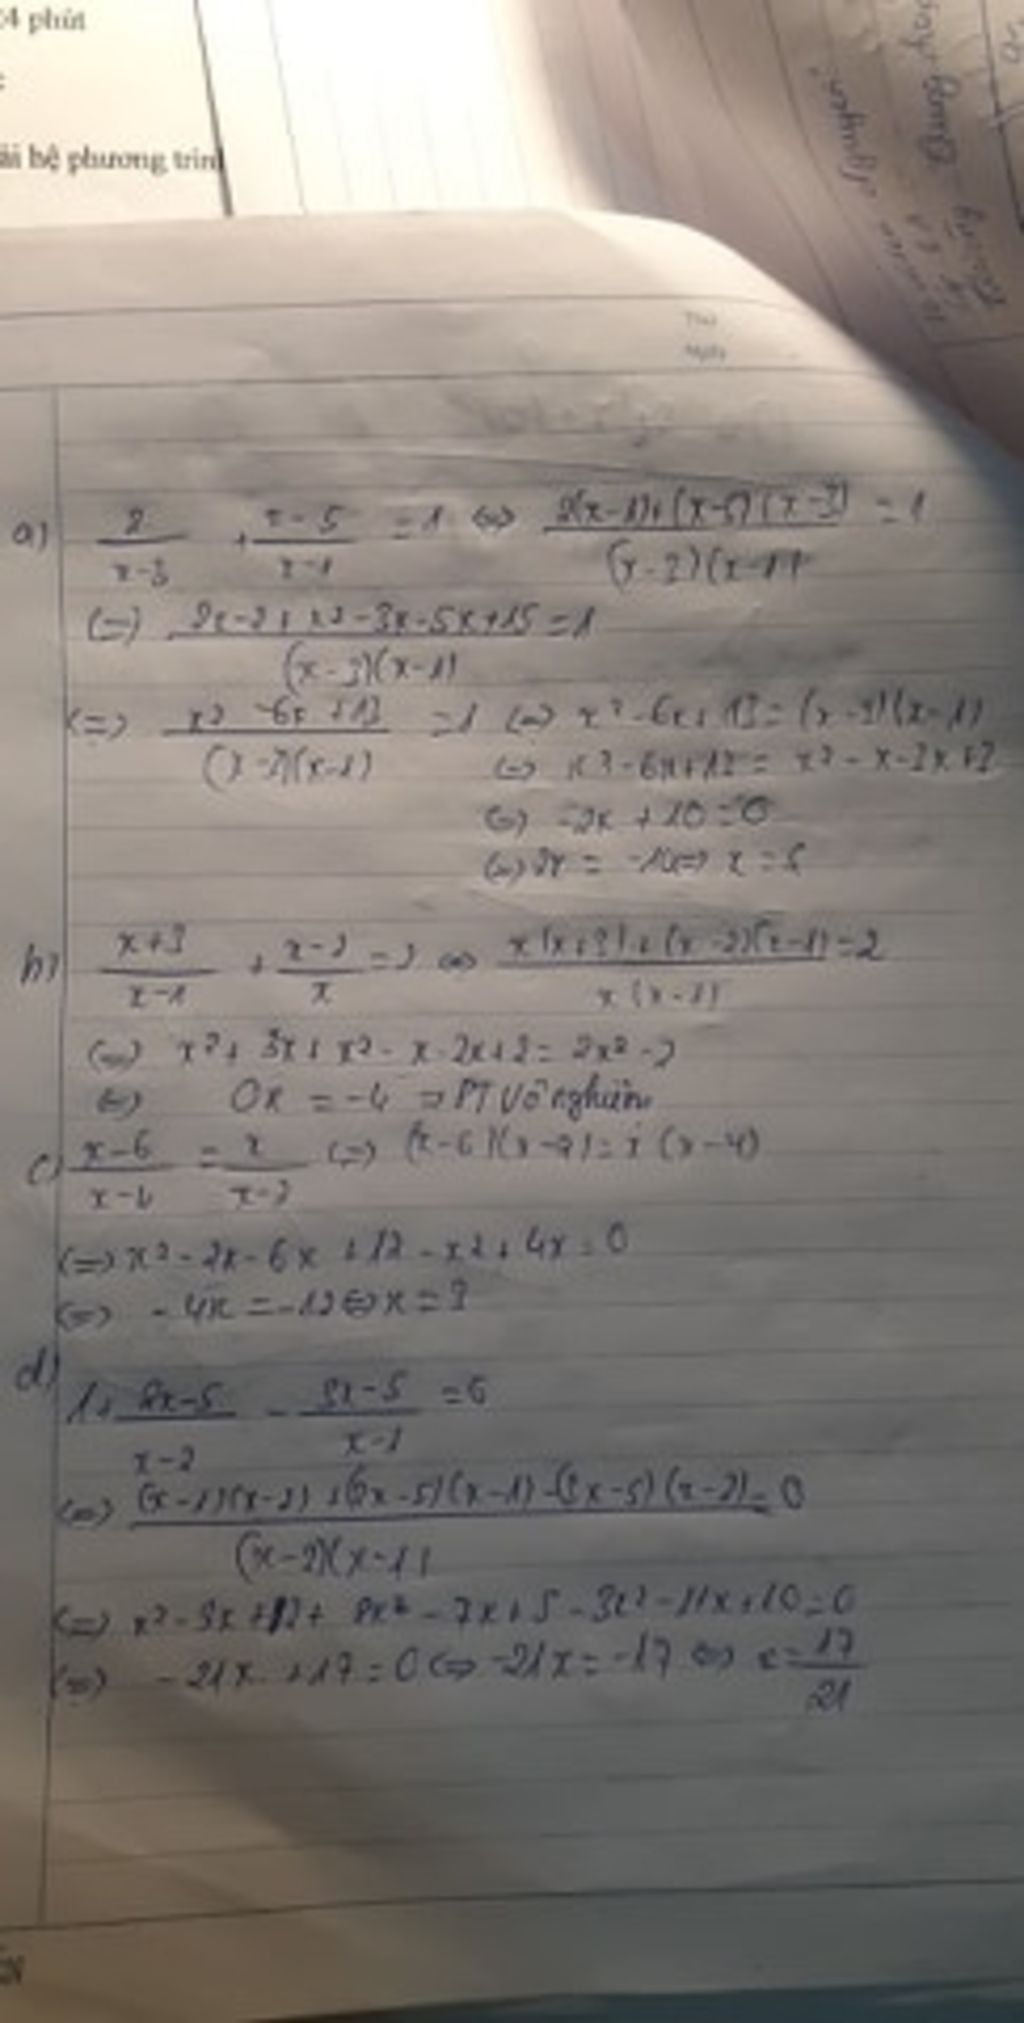 4 phút
ải hệ phương trìn
Thứ
Ngày
a) 2/(x-3) + (x-5)/(x-1) = 1 <=> (2(x-1)+(x-5)(x-3))/((x-3)(x-1)) = 1
(=) (2x-2+x²-3x-5x+15)/((x-3)(x-1)) = 1
<=> (x²-6x+13)/((x-3)(x-1)) = 1 <=> x²-6x+13=(x-3)(x-1)
<=> x²-6x+13= x²-x-3x+3
<=> -2x+10=0
<=> 2x = -10 => x = 5
b) (x+3)/(x-1) + (x-2)/x = 2 <=> (x(x+3)+(x-2)(x-1))/(x(x-1)) = 2
<=> x²+3x+x²-x-2x+2=2x²-2
<=> 0x = -4 => PT vô nghiệm
c) (x-6)/(x-4) = x/(x-2) <=> (x-6)(x-2)=x(x-4)
<=> x²-2x-6x+12-x²+4x=0
<=> -4x=-12<=>x=3
d)
1+(2x-5)/(x-2) - (3x-5)/(x-1) = 0
<=> ((x-1)(x-2)+(2x-5)(x-1)-(3x-5)(x-2))/((x-2)(x-1)) = 0
<=> x²-3x+2+2x²-7x+5-3x²-11x+10=0
<=> -21x+17=0<=>-21x=-17<=> x=17/21